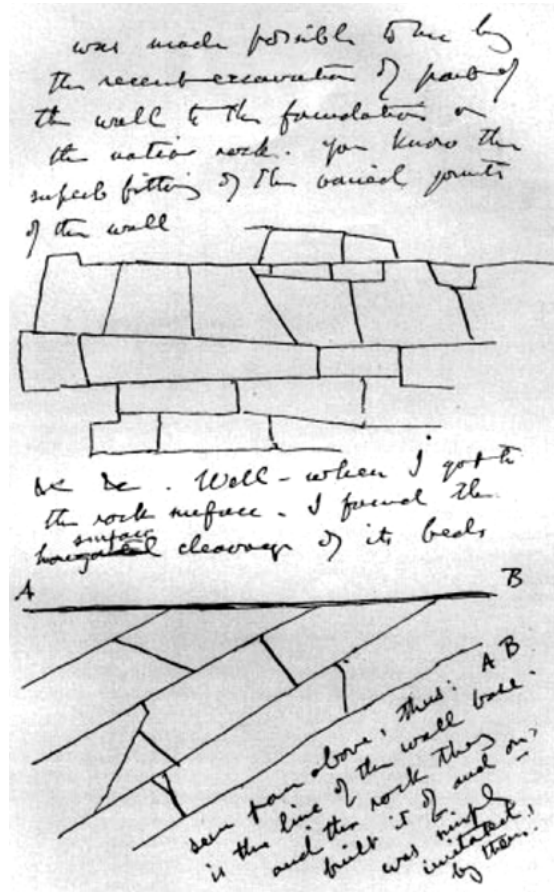 was made possible to me by
the recent excavation of part of
the wall to the foundation on
the native rock. You know the
superb fitting of the varied joints
of the wall
&c &c. Well - when I got to
the rock surface - I found the
surface
horizontal cleavage of its beds
A B
seen from above, thus: AB
is the line of the wall base
and the rock they
built it of and on,
was simply
imitated
by them.